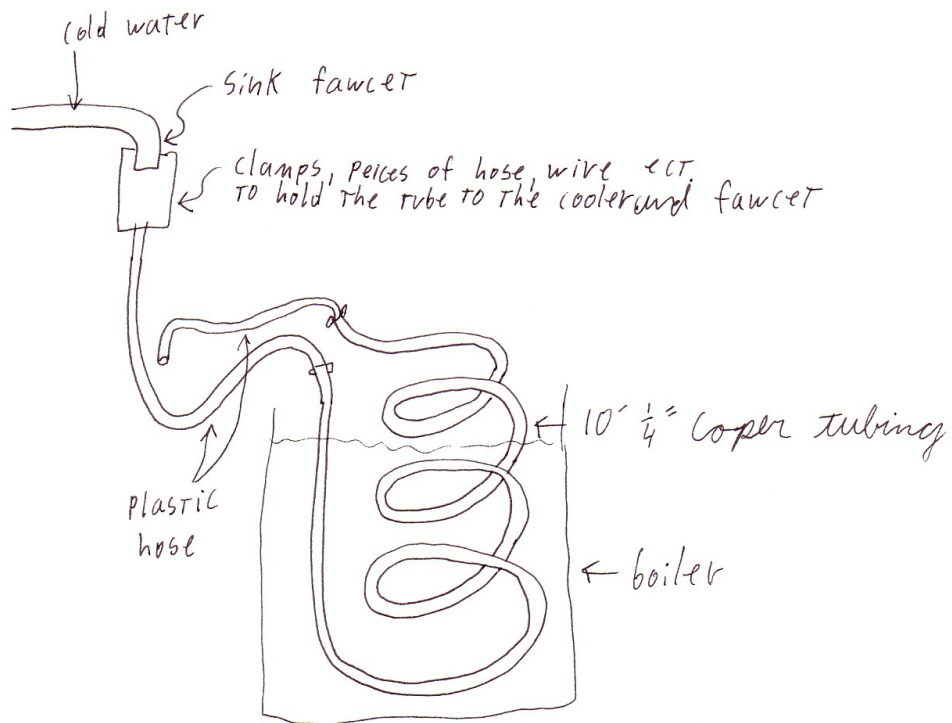 cold water
sink faucet
clamps, peices of hose, wire ect.
to hold the tube to the cooler and faucet
10' 1/4" coper tubing
plastic
hose
boiler